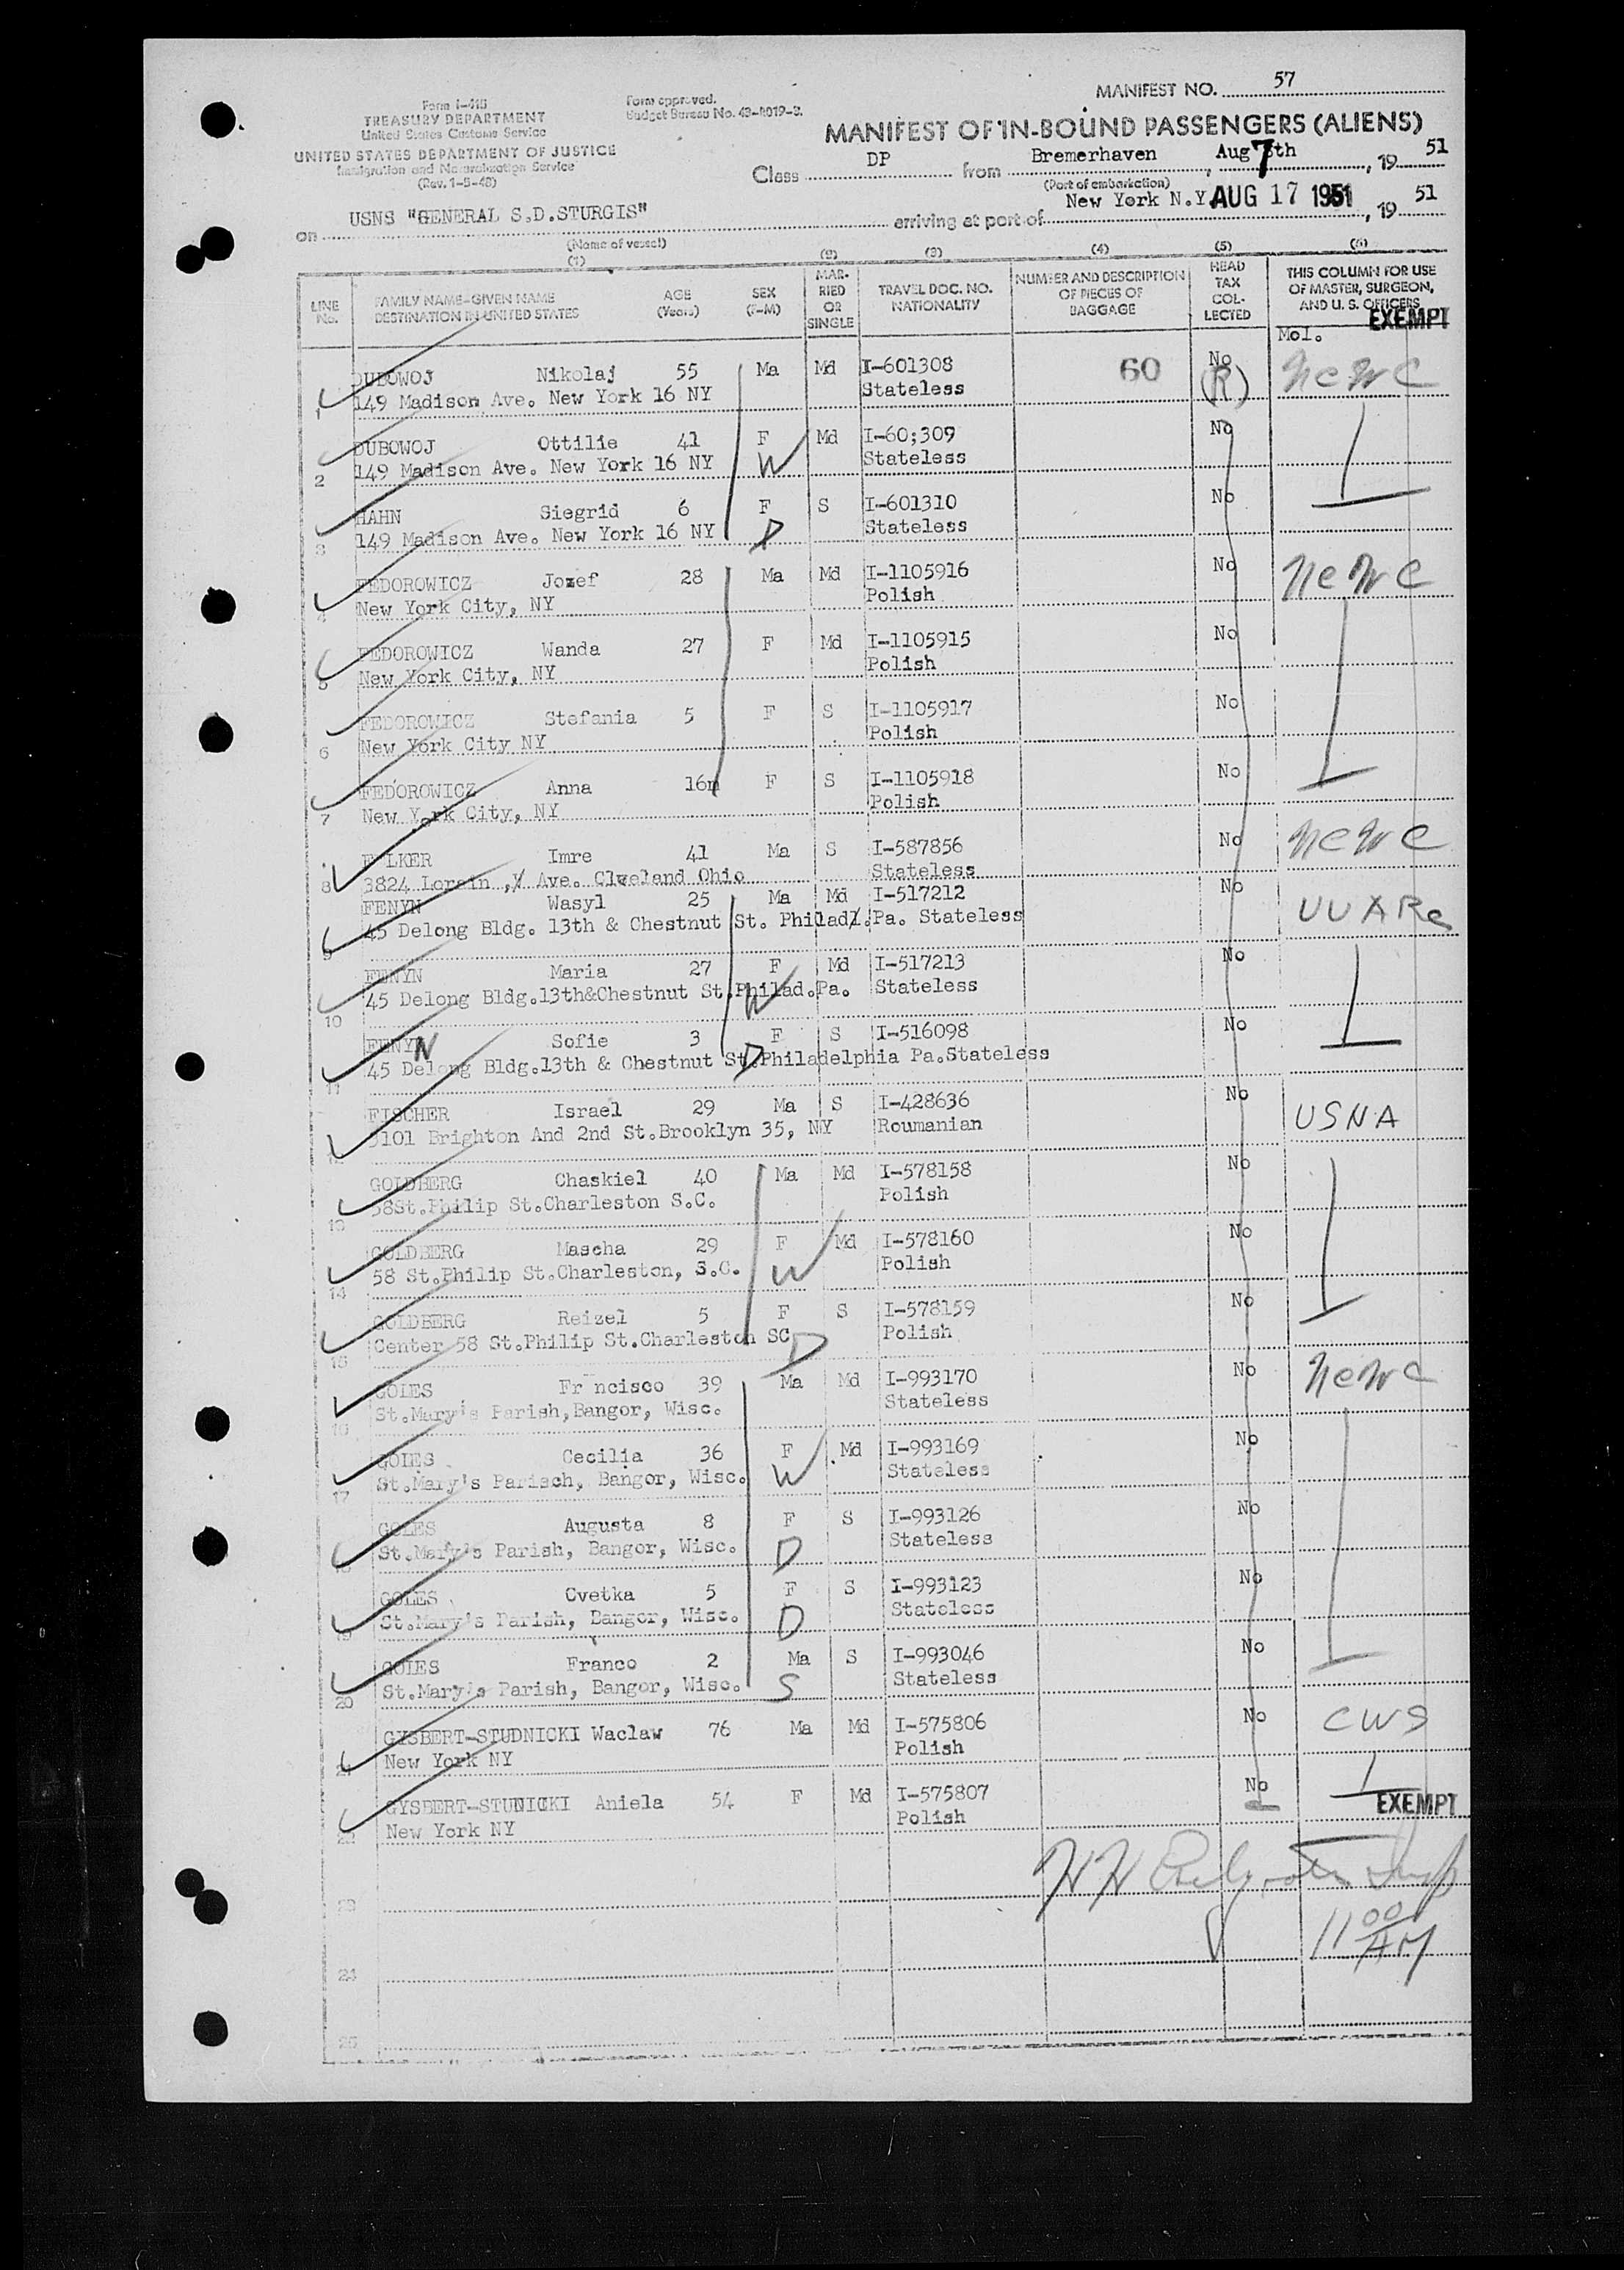 MANIFEST NO. 57
Form I-418
TREASURY DEPARTMENT
United States Customs Service
UNITED STATES DEPARTMENT OF JUSTICE
Immigration and Naturalization Service
(Rev. 1-5-48)
Form approved.
Budget Bureau No. 43-R019-3.
MANIFEST OF IN-BOUND PASSENGERS (ALIENS)
Class DP from Bremerhaven, Aug 7th, 19 51
(Port of embarkation)
on USNS "GENERAL S.D.STURGIS" arriving at port of New York N.Y. AUG 17 1951, 19 51
(Name of vessel)
(1) (2) (3) (4) (5) (6)
LINE No. FAMILY NAME-GIVEN NAME DESTINATION IN UNITED STATES AGE (Years) SEX (F-M) MARRIED OR SINGLE TRAVEL DOC. NO. NATIONALITY NUMBER AND DESCRIPTION OF PIECES OF BAGGAGE HEAD TAX COLLECTED THIS COLUMN FOR USE OF MASTER, SURGEON, AND U. S. OFFICERS
EXEMPT
Mol.
1 DUBOWOJ Nikolaj 55 Ma Md I-601308 60 No (R) NCWC
149 Madison Ave. New York 16 NY Stateless
2 DUBOWOJ Ottilie 41 F W Md I-60;309 No
149 Madison Ave. New York 16 NY Stateless
3 HAHN Siegrid 6 F D S I-601310 No
149 Madison Ave. New York 16 NY Stateless
4 FEDOROWICZ Jozef 28 Ma Md I-1105916 No NCWC
New York City, NY Polish
5 FEDOROWICZ Wanda 27 F Md I-1105915 No
New York City, NY Polish
6 FEDOROWICZ Stefania 5 F S I-1105917 No
New York City NY Polish
7 FEDOROWICZ Anna 16m F S I-1105918 No
New York City, NY Polish
8 Imre 41 Ma S I-587856 No NCWC
3824 Lorain , Ave. Clveland Ohio Stateless
9 FENYN Wasyl 25 Ma Md I-517212 No UUARC
45 Delong Bldg. 13th & Chestnut St. Philad.Pa. Stateless
10 FENYN Maria 27 F W Md I-517213 No
45 Delong Bldg.13th&Chestnut St.Philad.Pa. Stateless
11 FENYN Sofie 3 F D S I-516098 No
45 Delong Bldg.13th & Chestnut St.Philadelphia Pa.Stateless
12 FISCHER Israel 29 Ma S I-428636 No USNA
3101 Brighton And 2nd St.Brooklyn 35, NY Roumanian
13 GOLDBERG Chaskiel 40 Ma Md I-578158 No
58St.Philip St.Charleston S.C. Polish
14 GOLDBERG Mascha 29 F W Md I-578160 No
58 St.Philip St.Charleston, S.C. Polish
15 GOLDBERG Reizel 5 F D S I-578159 No
Center 58 St.Philip St.Charleston SC Polish
16 GOLES Francisco 39 Ma Md I-993170 No NCWC
St.Mary's Parish,Bangor, Wisc. Stateless
17 GOLES Cecilia 36 F W Md I-993169 No
St.Mary's Parisch, Bangor, Wisc. Stateless
18 GOLES Augusta 8 F D S I-993126 No
St.Mary's Parish, Bangor, Wisc. Stateless
19 GOLES Cvetka 5 F D S I-993123 No
St.Mary's Parish, Bangor, Wisc. Stateless
20 GOLES Franco 2 Ma S S I-993046 No
St.Mary's Parish, Bangor, Wisc. Stateless
21 GYSBERT-STUDNICKI Waclaw 76 Ma Md I-575806 No CWS
New York NY Polish
22 GYSBERT-STUNICKI Aniela 54 F Md I-575807 No
New York NY Polish
EXEMPT
23
11 00 AM
24
25